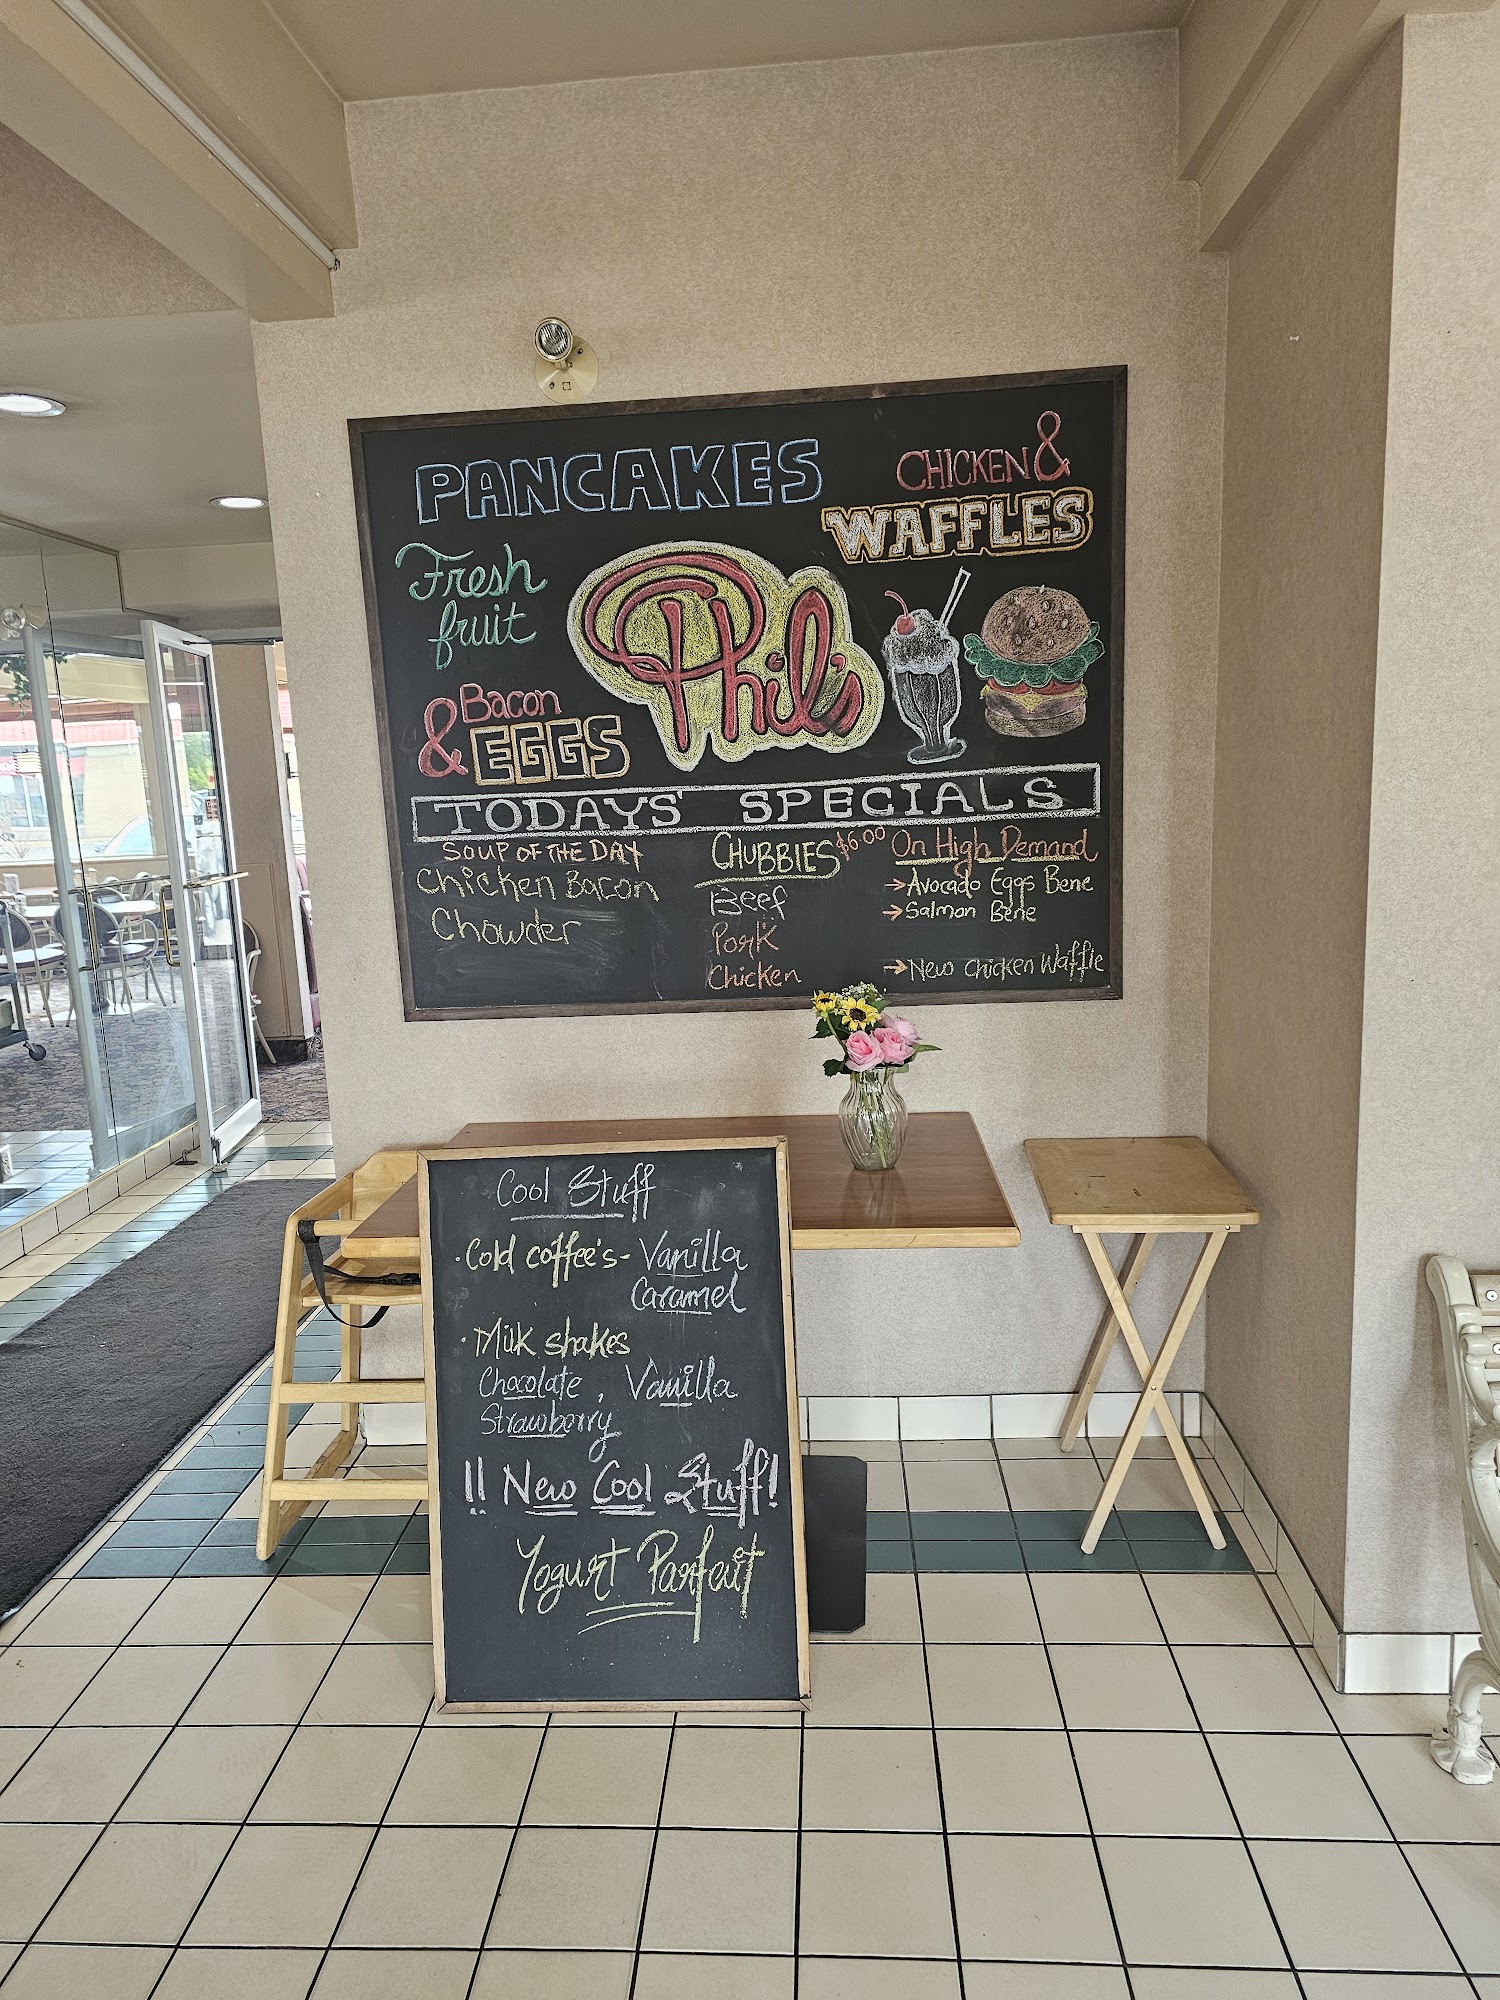 PANCAKES
CHICKEN &
WAFFLES
Fresh
fruit
Phil's
& Bacon
EGGS
TODAYS' SPECIALS
SOUP OF THE DAY
Chicken Bacon
Chowder
CHUBBIES $6.00
Beef
Pork
Chicken
On High Demand
→Avocado Eggs Bene
→Salmon Bene
→New Chicken Waffle
Cool Stuff
·Cold coffee's- Vanilla
Caramel
·Milk shakes
Chocolate, Vanilla
Strawberry
!! New Cool Stuff!
Yogurt Parfait